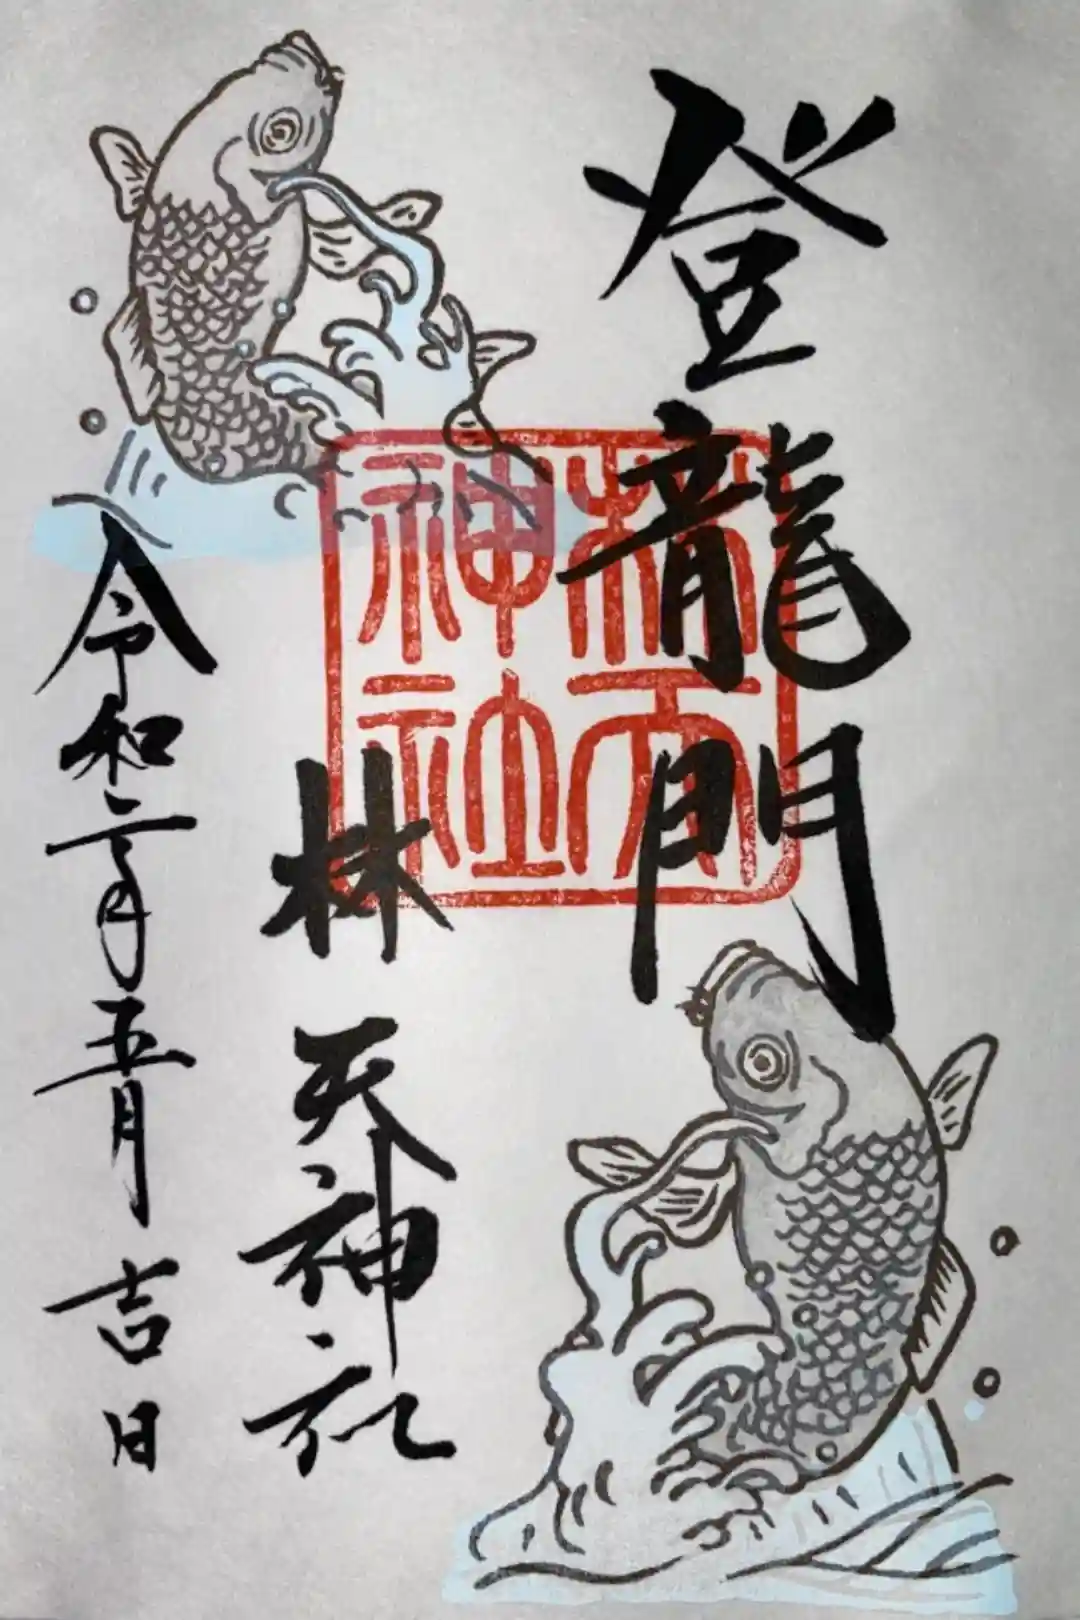 登龍門
林天神社
令和二年五月吉日
林天
神社